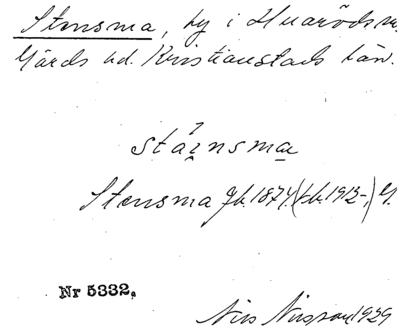 Stensma, by i Huaröds sn.
Gärds hd. Kristianstads län.
stáinsma
Stensma Jb. 1874. (kb. 1913-,) G.
Nr 5332.
Nils Nilsson 1929